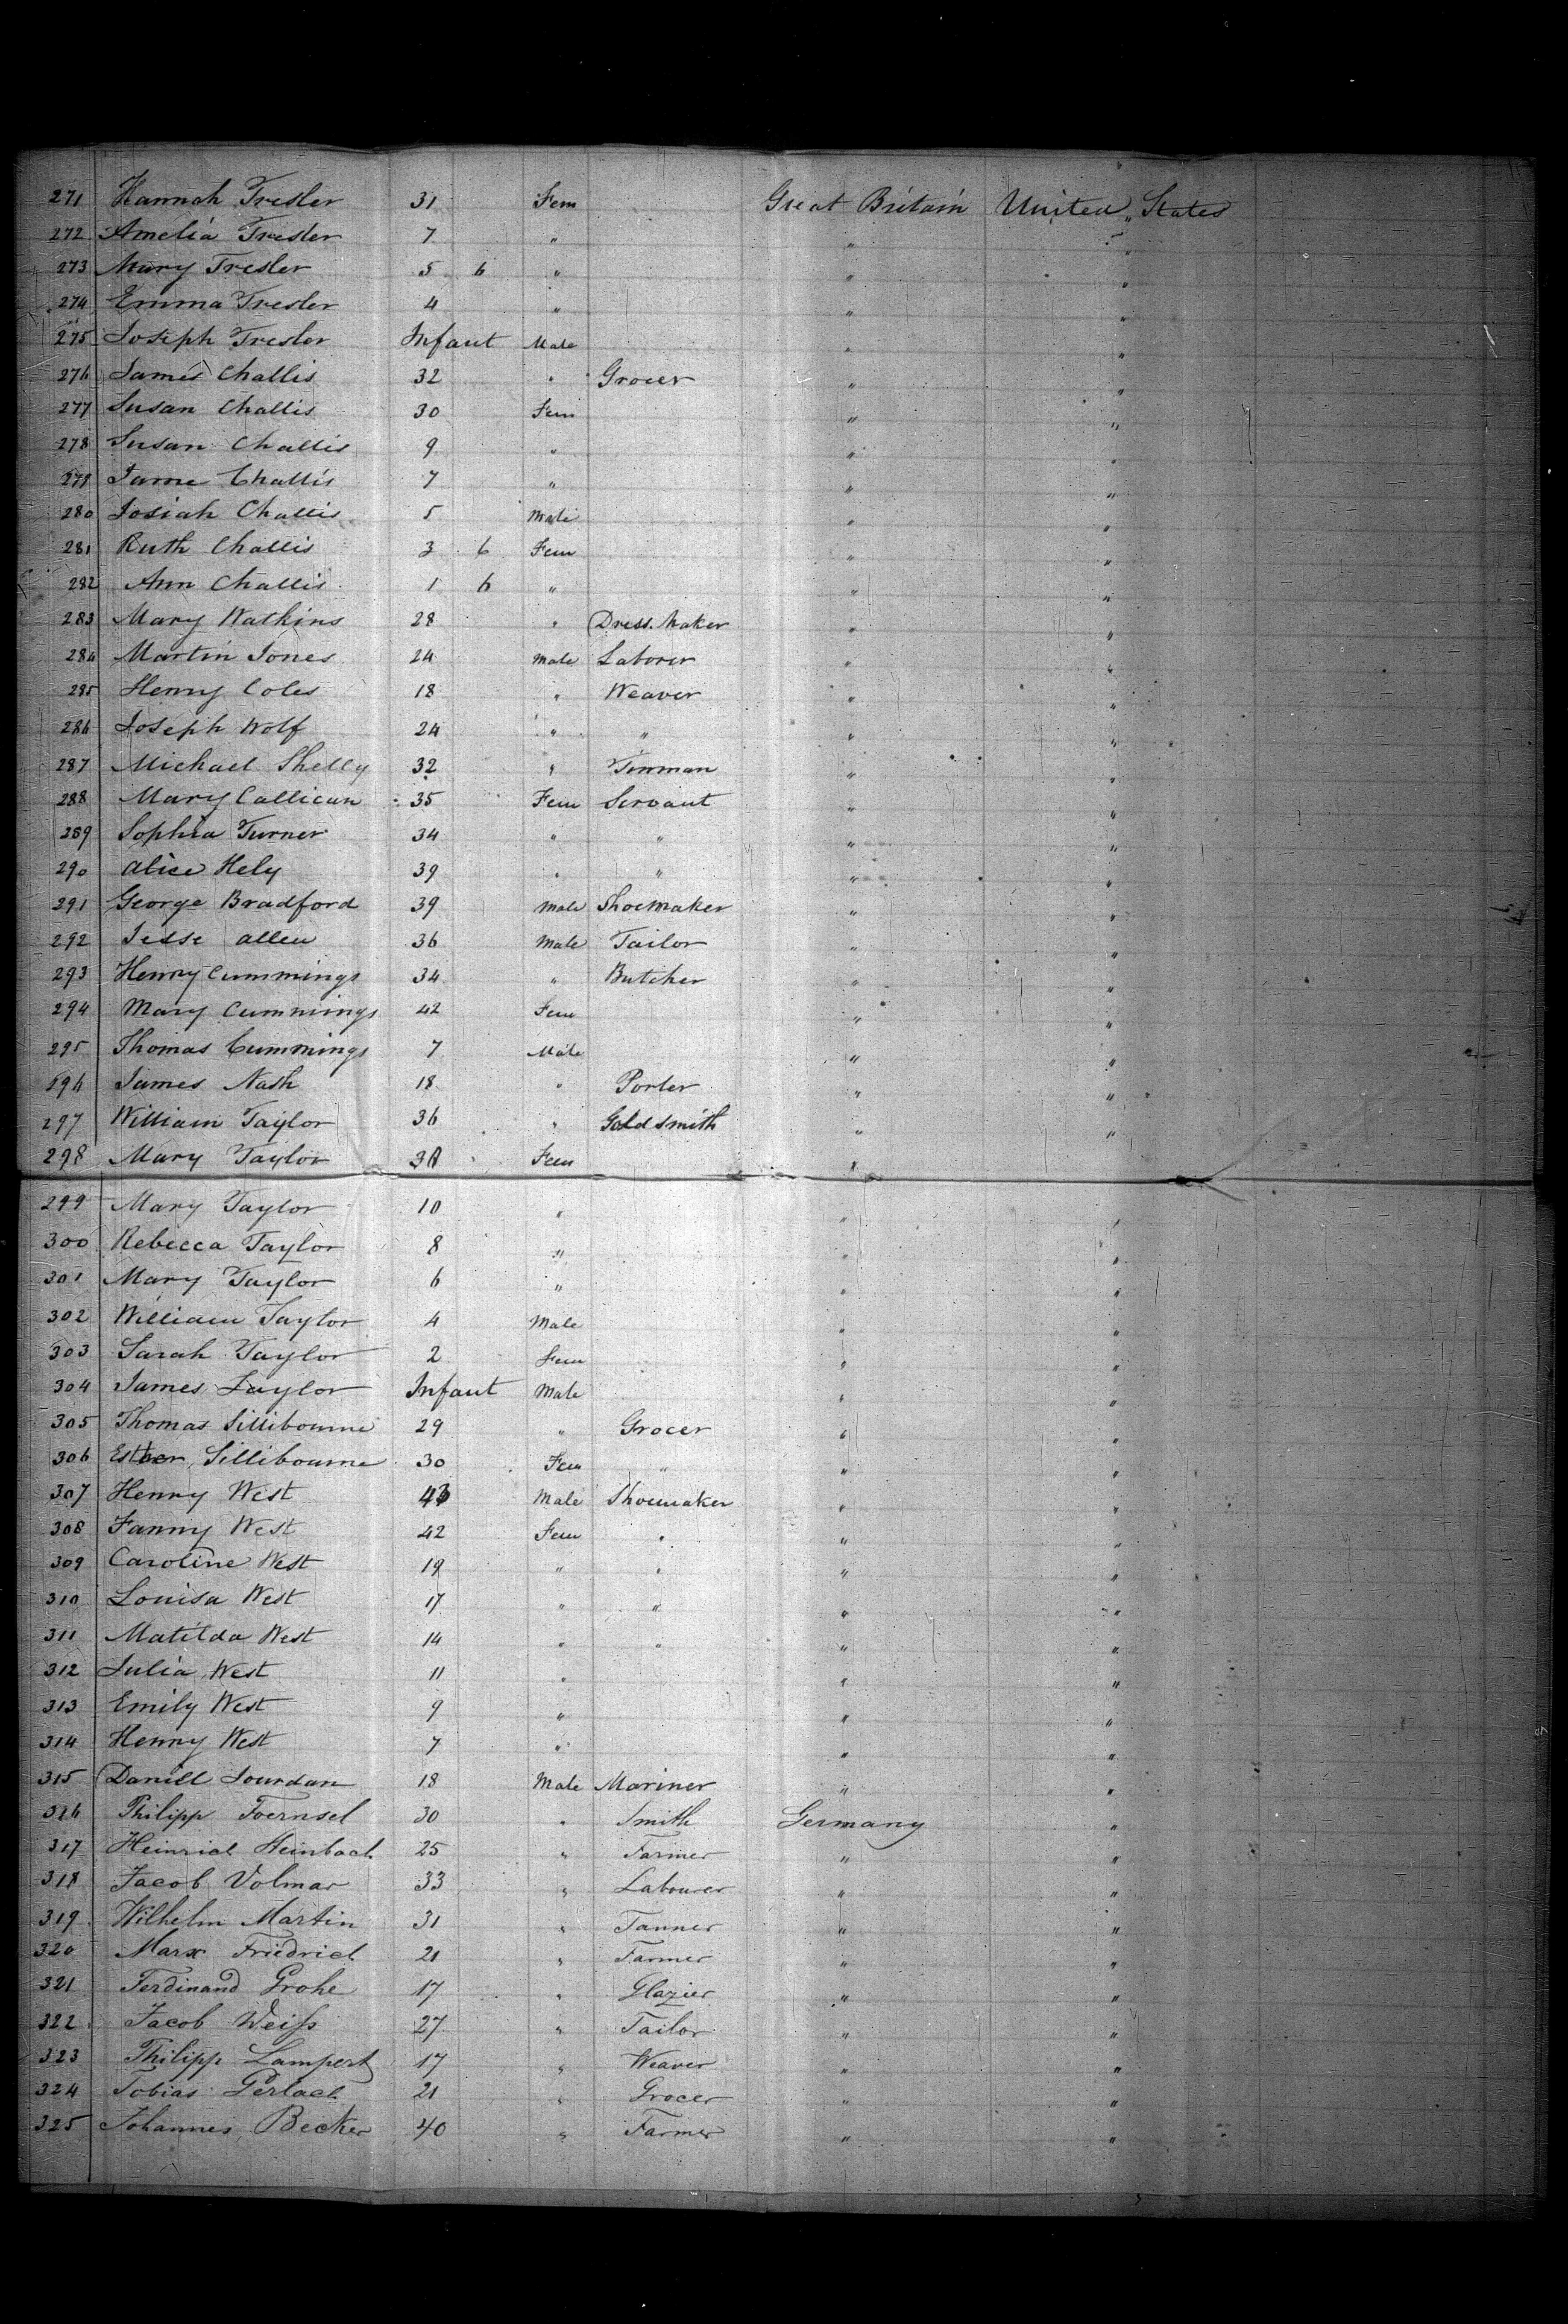 271 Hannah Tresler 31 Fem Great Britain United States
272 Amelia Tresler 7 " " "
273 Mary Tresler 5 6 " " "
274 Emma Tresler 4 " " "
275 Joseph Tresler Infant Male " "
276 James Challis 32 " Grocer " "
277 Susan Challis 30 Fem " "
278 Susan Challis 9 " " "
279 Jame Challis 7 " " "
280 Josiah Challis 5 Male " "
281 Ruth Challis 3 6 Fem " "
282 Ann Challis 1 6 " " "
283 Mary Watkins 28 " Dress Maker " "
284 Martin Jones 24 Male Laborer " "
285 Henry Coles 18 " Weaver " "
286 Joseph Wolf 24 " " " "
287 Michael Shelly 32 " Tinman " "
288 Mary Callican 35 Fem Servant " "
289 Sophia Turner 34 " " " "
290 Alice Hely 39 " " " "
291 George Bradford 39 Male Shoemaker " "
292 Jesse Allen 36 Male Tailor " "
293 Henry Cummings 34 " Butcher " "
294 Mary Cummings 42 Fem " "
295 Thomas Cummings 7 Male " "
296 James Nash 18 " Porter " "
297 William Taylor 36 " Goldsmith " "
298 Mary Taylor Fem "
299 Mary Taylor 10 " " "
300 Rebecca Taylor 8 " " "
301 Mary Taylor 6 " " "
302 William Taylor 4 Male " "
303 Sarah Taylor 2 Fem " "
304 James Taylor Infant Male " "
305 Thomas Sillibourne 29 " Grocer " "
306 Esther Sillibourne 30 Fem " " "
307 Henry West 43 Male Shoemaker " "
308 Fanny West 42 Fem " " "
309 Caroline West 19 " " " "
310 Louisa West 17 " " " "
311 Matilda West 14 " " " "
312 Julia West 11 " " "
313 Emily West 9 " " "
314 Henry West 7 " " "
315 Daniel Jourdan 18 Male Mariner " "
316 Philipp Foernsel 30 " Smith Germany "
317 Heinrich Steinbach 25 " Farmer " "
318 Jacob Volmar 33 " Labourer " "
319 Wilhelm Martin 31 " Tanner " "
320 Marx Friedrich 21 " Farmer " "
321 Ferdinand Grohe 17 " Glazier " "
322 Jacob Weiß 27 " Tailor " "
323 Philipp Lampert 17 " Weaver " "
324 Tobias Gerlach 21 " Grocer " "
325 Johannes Becker 40 " Farmer " "